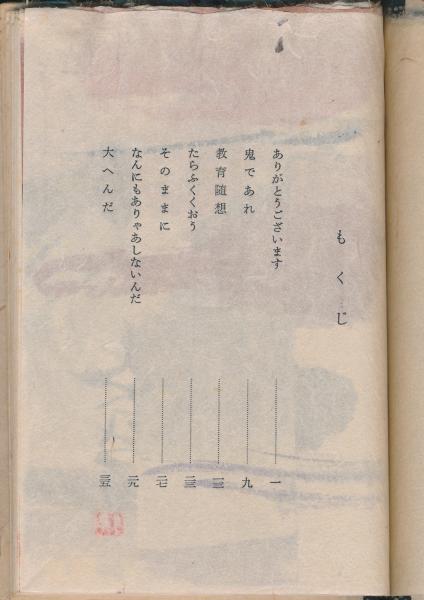 もくじ
ありがとうございます……一
鬼であれ……九
教育随想……一三
たらふくくおう……二三
そのままに……二七
なんにもありゃあしないんだ……二九
大へんだ……三五